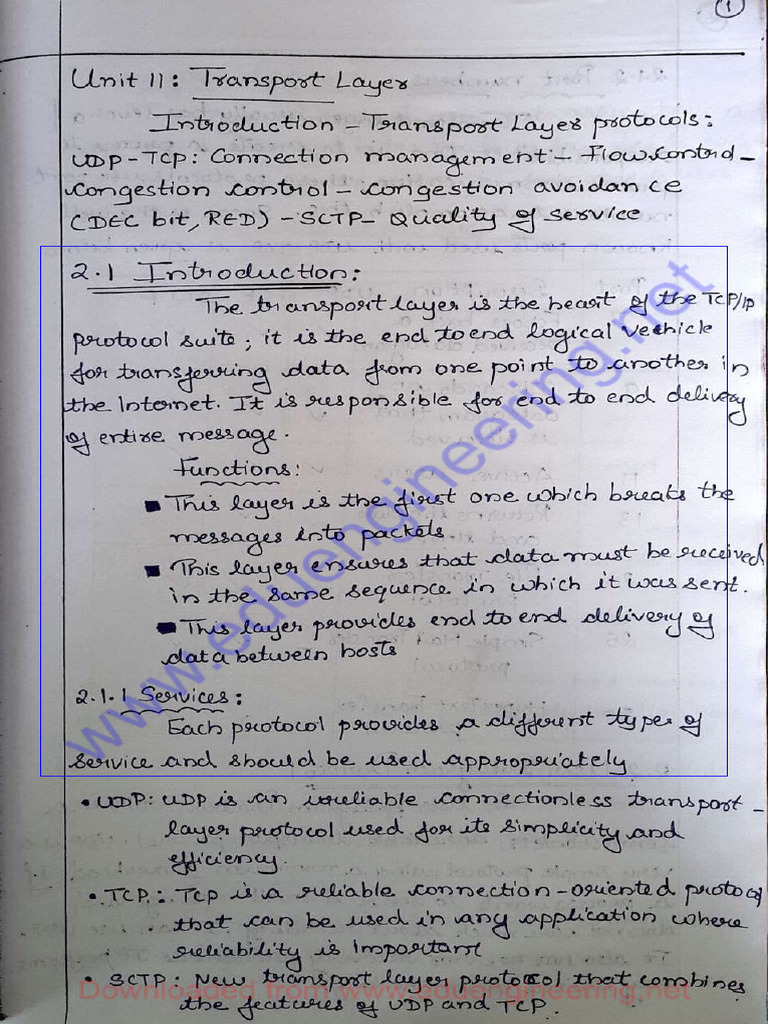 1
Unit 11: Transport Layer
Introduction - Transport Layer protocols:
UDP-TCP: Connection management - Flow control -
congestion control - congestion avoidance
(DEC bit, RED) - SCTP- Quality of service
2.1 Introduction:
The transport layer is the heart of the TCP/IP
protocol suite; it is the end to end logical vechicle
for transferring data from one point to another in
the Internet. It is responsible for end to end delivery
of entire message.
Functions:
■ This layer is the first one which breaks the
messages into packets.
■ This layer ensures that data must be received
in the same sequence in which it was sent.
■ This layer provides end to end delivery of
data between hosts
2.1.1 Services:
Each protocol provides a different type of
service and should be used appropriately
• UDP: UDP is an unreliable connectionless transport -
layer protocol used for its simplicity and
efficiency.
• TCP: TCP is a reliable connection-oriented protocol
that can be used in any application where
reliability is important
• SCTP: New transport layer protocol that combines
the features of UDP and TCP.
www.eduengineering.net
Downloaded from www.eduengineering.net